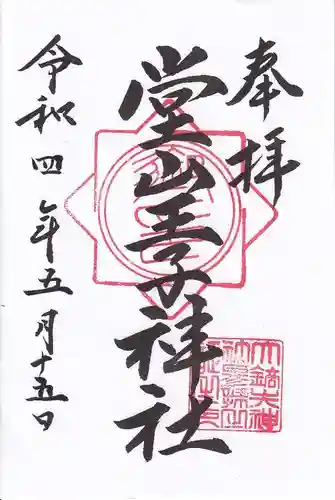 奉拝
堂山王子神社
令和四年五月十五日